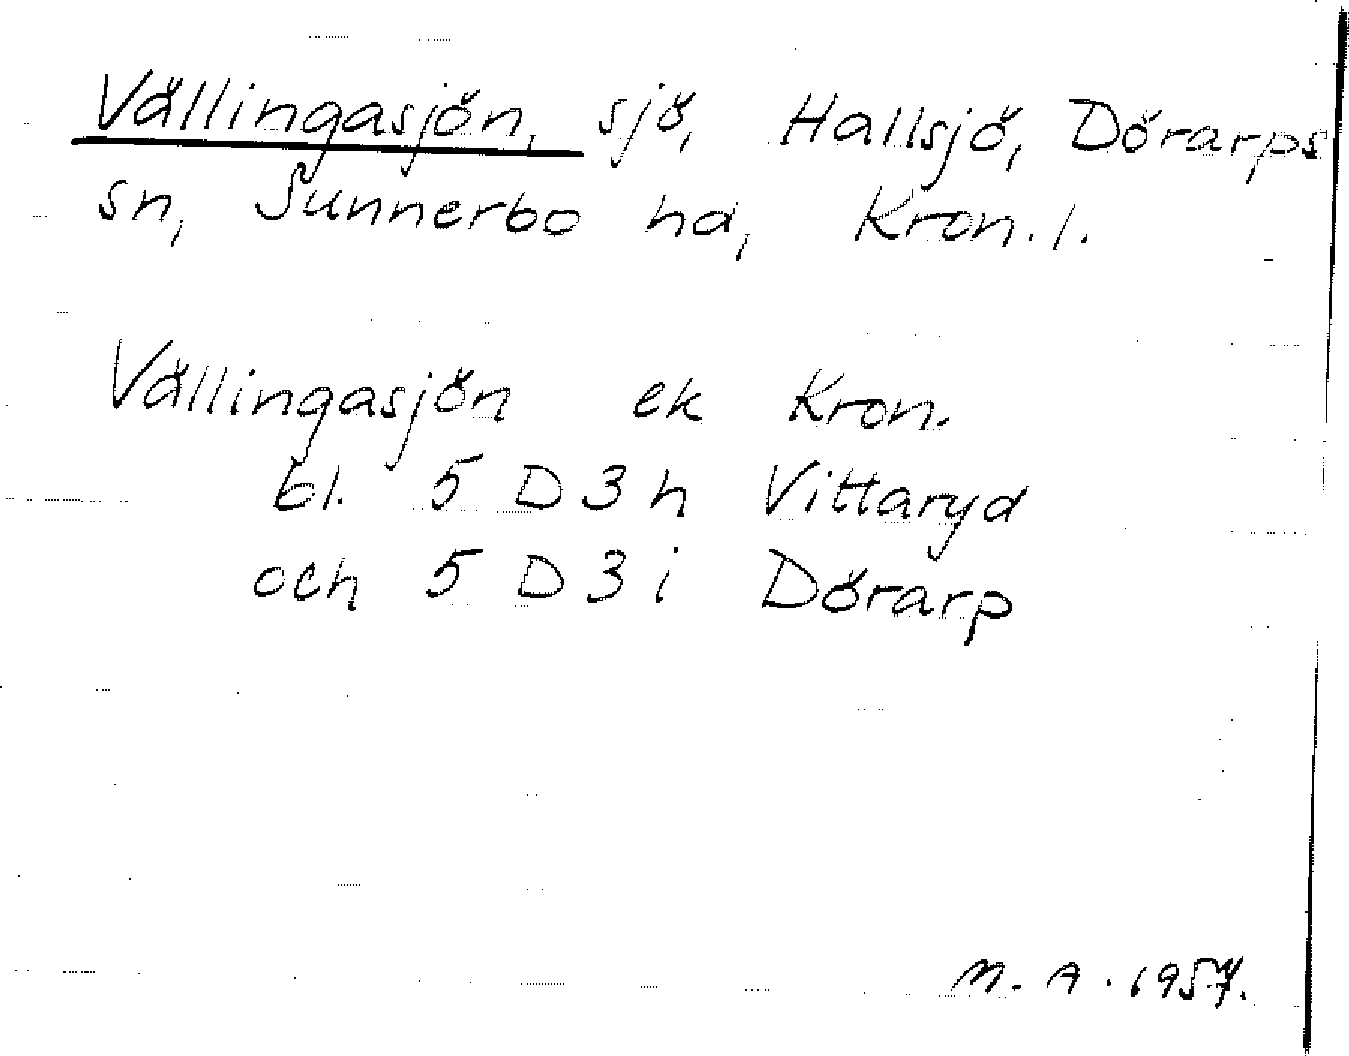 Vällingasjön, sjö, Hallsjö, Dörarps
sn, Sunnerbo hd, Kron. l.
Vällingasjön ek Kron.
bl. 5 D 3 h Vittaryd
och 5 D 3 i Dörarp
M. A. 1957.